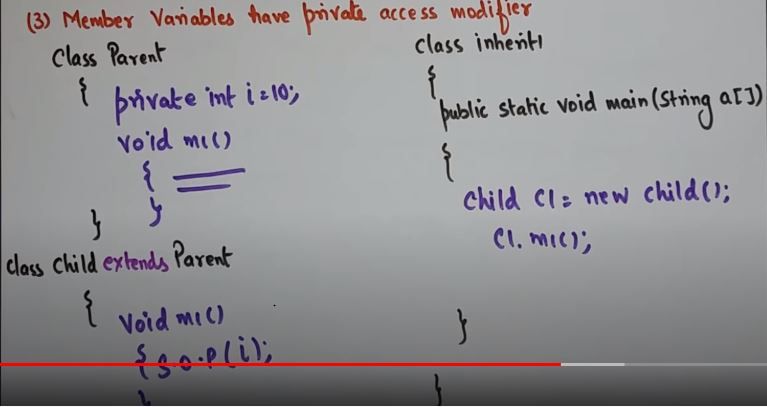 (3) Member Variables have private access modifier
Class Parent
{ private int i=10;
void m1()
{
}
}
class Child extends Parent
{ void m1()
{ S.O.P(i);
}
class inherit1
{
public static void main(String a[])
{
Child C1= new child();
C1.m1();
}
}